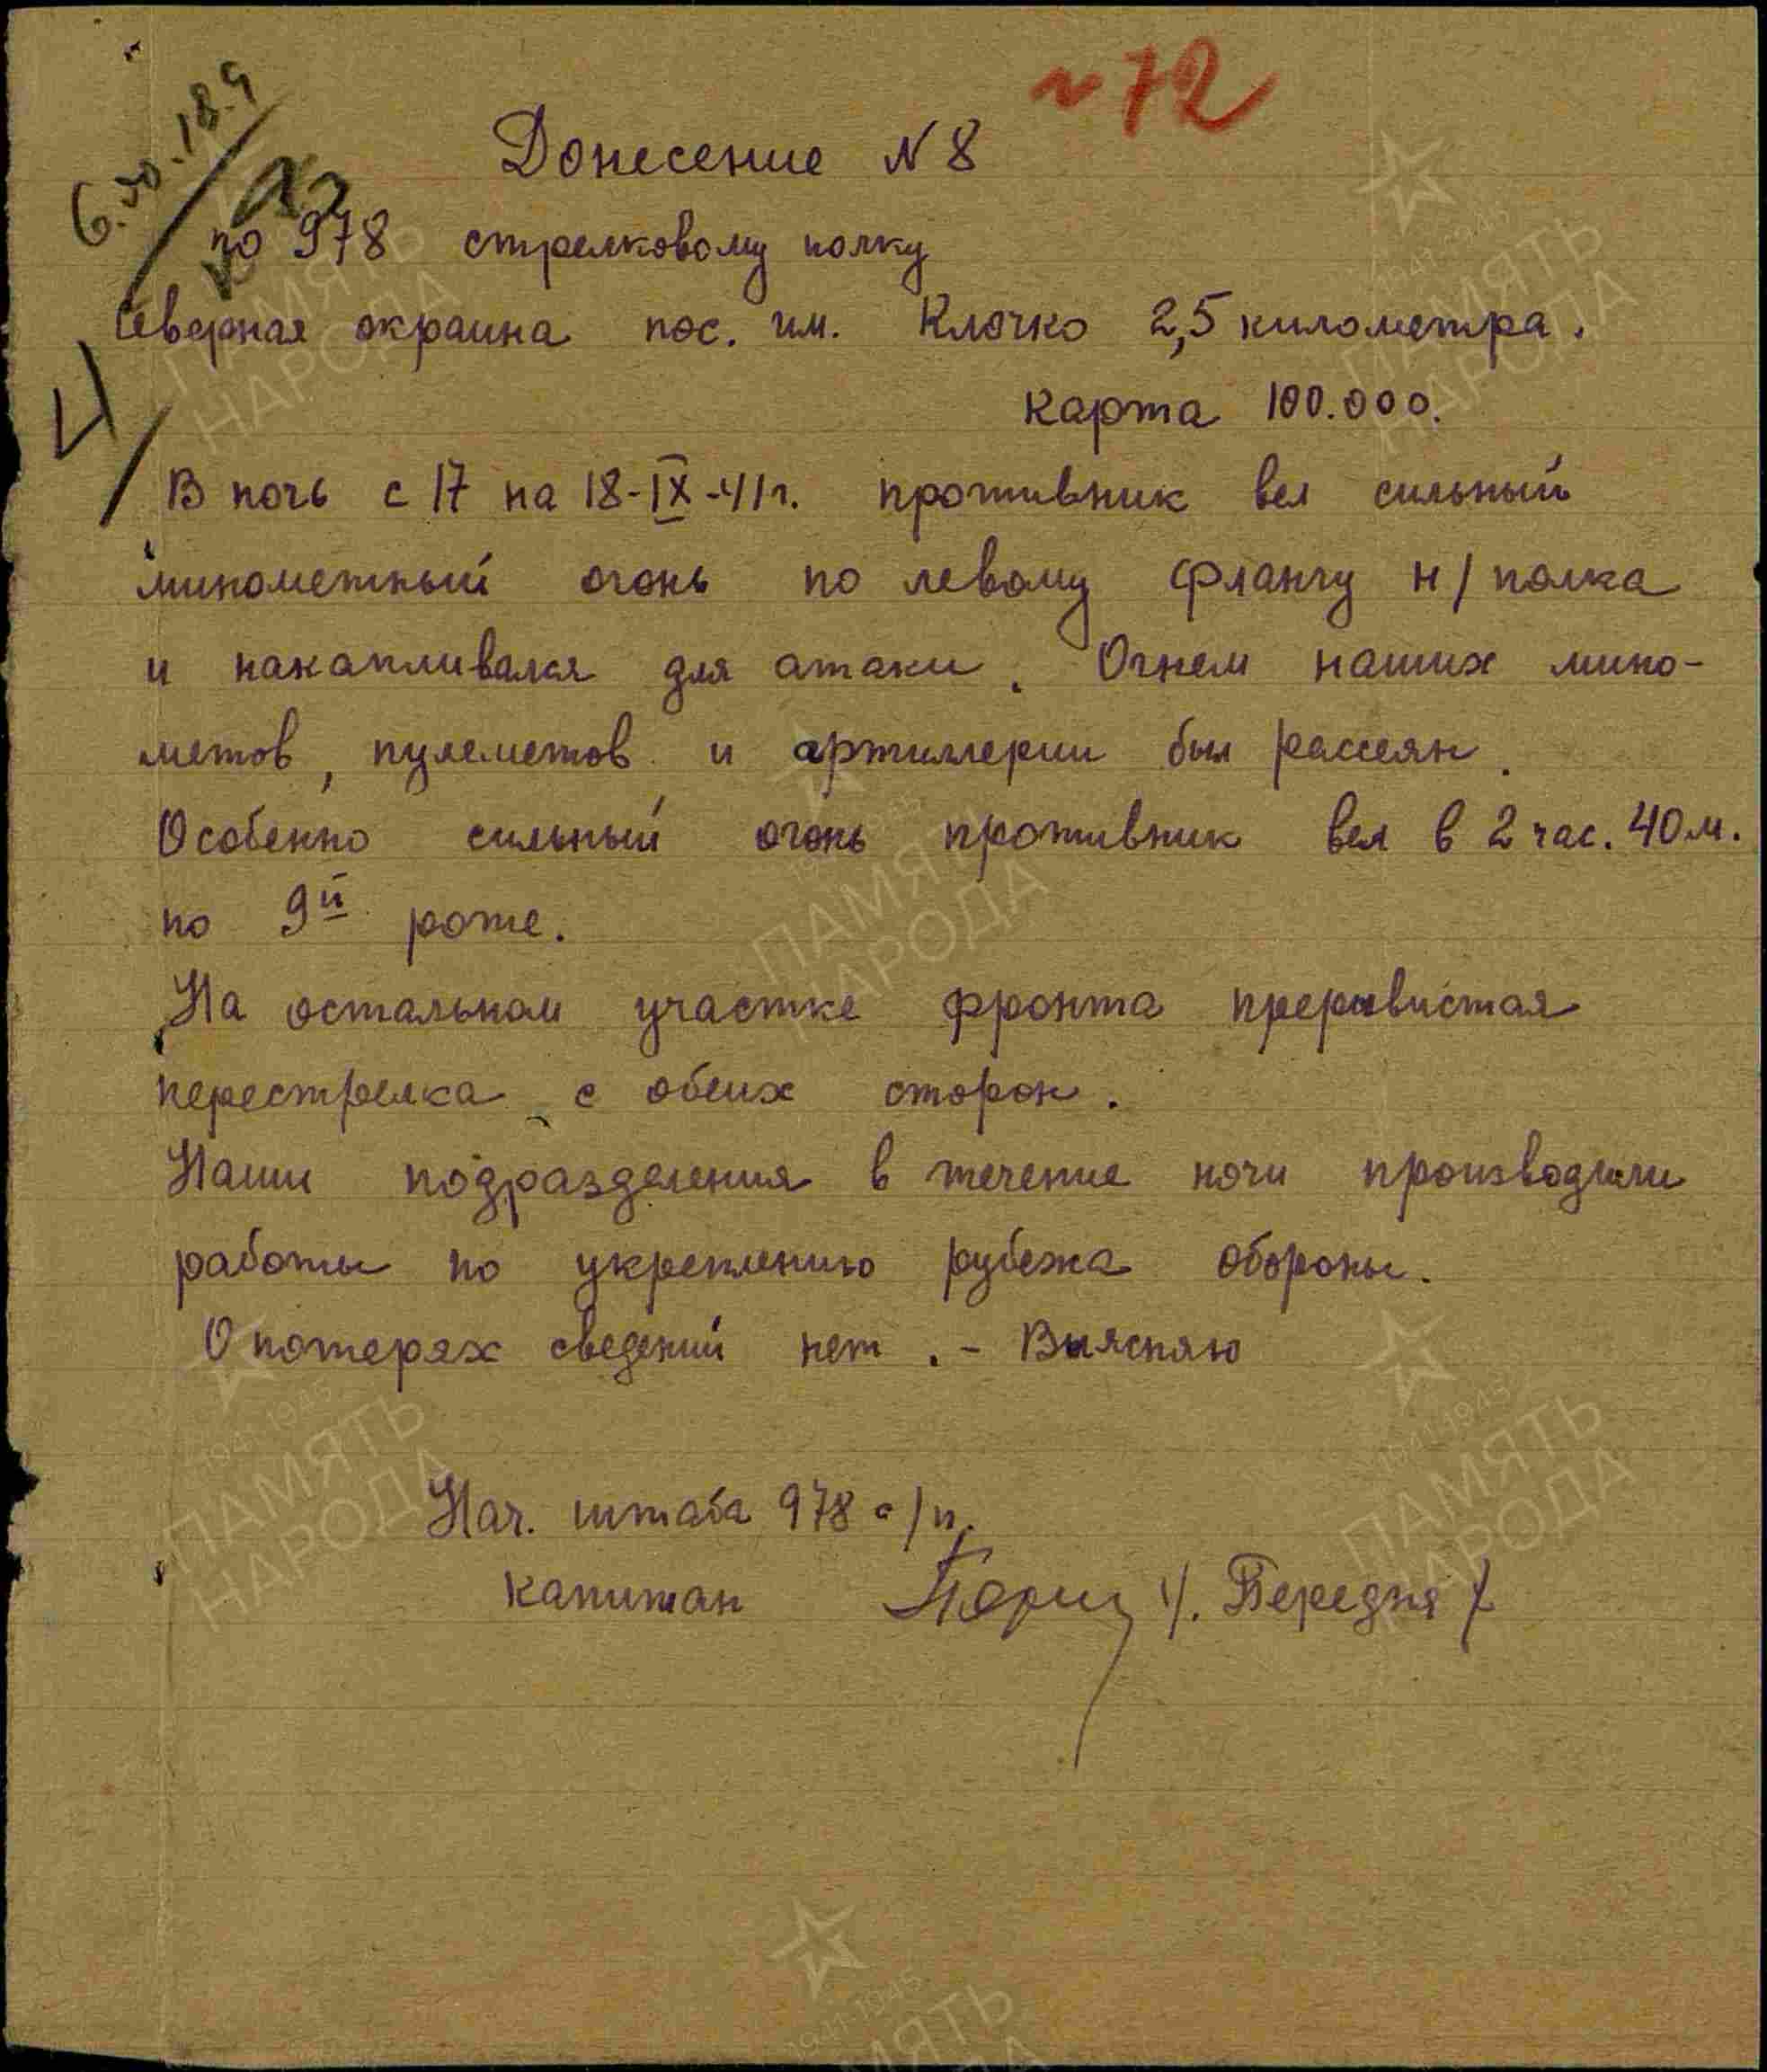 №72
6.20.18.9
Донесение №8
по 978 стрелковому полку
Северная окраина пос. им. Клочко 2,5 километра.
карта 100.000.
Ч
В ночь с 17 на 18-IX-41г. противник вел сильный
минометный огонь по левому флангу н/полка
и накапливался для атаки. Огнем наших мино-
метов, пулеметов и артиллерии был рассеян.
Особенно сильный огонь противник вел в 2 час. 40м.
по 9й роте.
На остальном участке фронта прерывистая
перестрелка с обеих сторон.
Наши подразделения в течение ночи производили
работы по укреплению рубежа обороны.
О потерях сведений нет. - Выясняю
Нач. штаба 978 с/п.
капитан
ПАМЯТЬ
НАРОДА
1941-1945